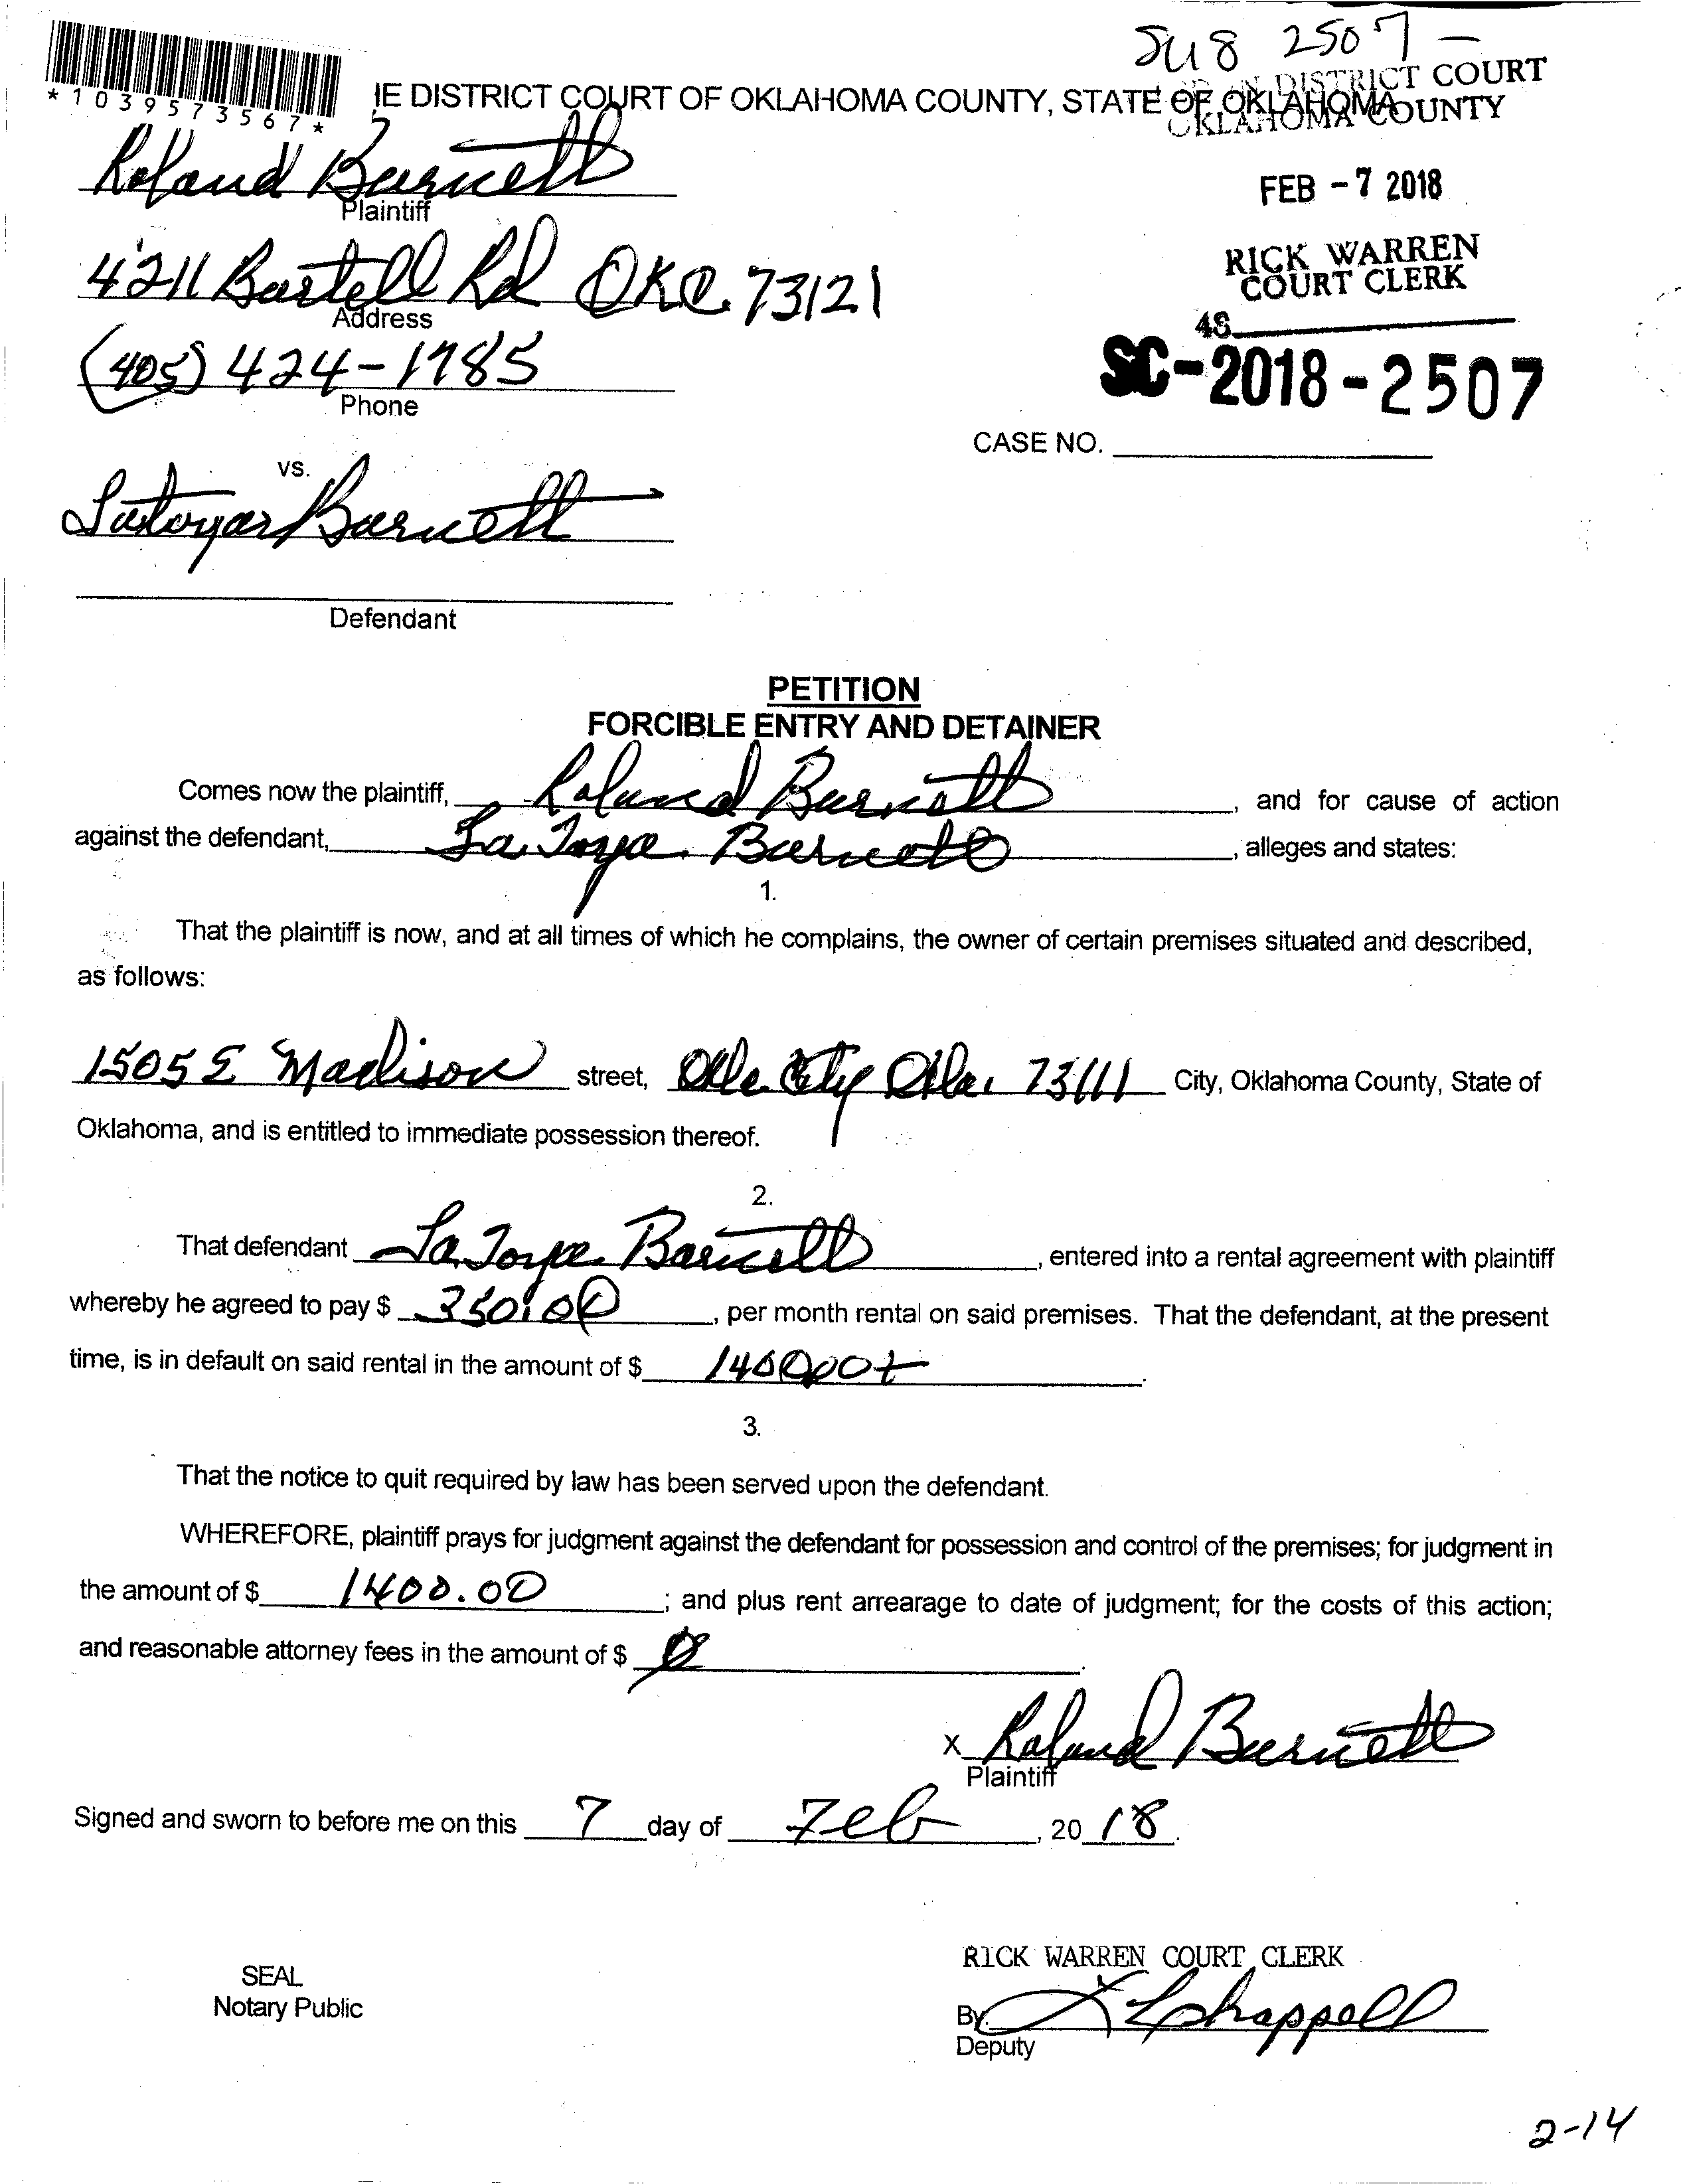 SC 18 2507 -
*1039573567*
IE DISTRICT COURT OF OKLAHOMA COUNTY, STATE OF OKLAHOMA
DISTRICT COURT
OKLAHOMA COUNTY
Roland Barnett
Plaintiff
FEB -7 2018
4211 Bartell Rd OKC. 73121
Address
RICK WARREN
COURT CLERK
48
(405) 424-1985
Phone
SC-2018-2507
CASE NO.
vs.
Latoya Barnett
Defendant
PETITION
FORCIBLE ENTRY AND DETAINER
Comes now the plaintiff, Roland Barnett, and for cause of action
against the defendant, La Toya Barnett, alleges and states:
1.
That the plaintiff is now, and at all times of which he complains, the owner of certain premises situated and described,
as follows:
1505 E Madison street, Okla City Okla. 73111 City, Oklahoma County, State of
Oklahoma, and is entitled to immediate possession thereof.
2.
That defendant La Toya Barnett, entered into a rental agreement with plaintiff
whereby he agreed to pay $ 350.00, per month rental on said premises. That the defendant, at the present
time, is in default on said rental in the amount of $ 1400.00+.
3.
That the notice to quit required by law has been served upon the defendant.
WHEREFORE, plaintiff prays for judgment against the defendant for possession and control of the premises; for judgment in
the amount of $ 1400.00; and plus rent arrearage to date of judgment; for the costs of this action;
and reasonable attorney fees in the amount of $ 0.
X Roland Barnett
Plaintiff
Signed and sworn to before me on this 7 day of Feb, 20 18.
RICK WARREN COURT CLERK
SEAL
Notary Public
By: Chappell
Deputy
2-14